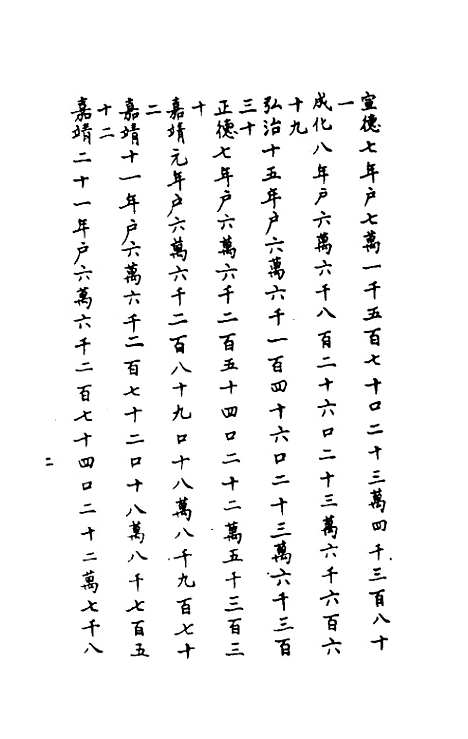 宣德七年戶七萬一千五百七十口二十三萬四千三百八十
一
成化八年戶六萬六千八百二十六口二十三萬六千六百六
十九
弘治十五年戶六萬六千一百四十六口二十三萬六千三百
三十
正德七年戶六萬六千二百五十四口二十二萬五千三百三
十
嘉靖元年戶六萬六千二百八十九口十八萬八千九百七十
二
嘉靖十一年戶六萬六千二百七十二口十八萬八千七百五
十二
嘉靖二十一年戶六萬六千二百七十四口二十二萬七千八
二